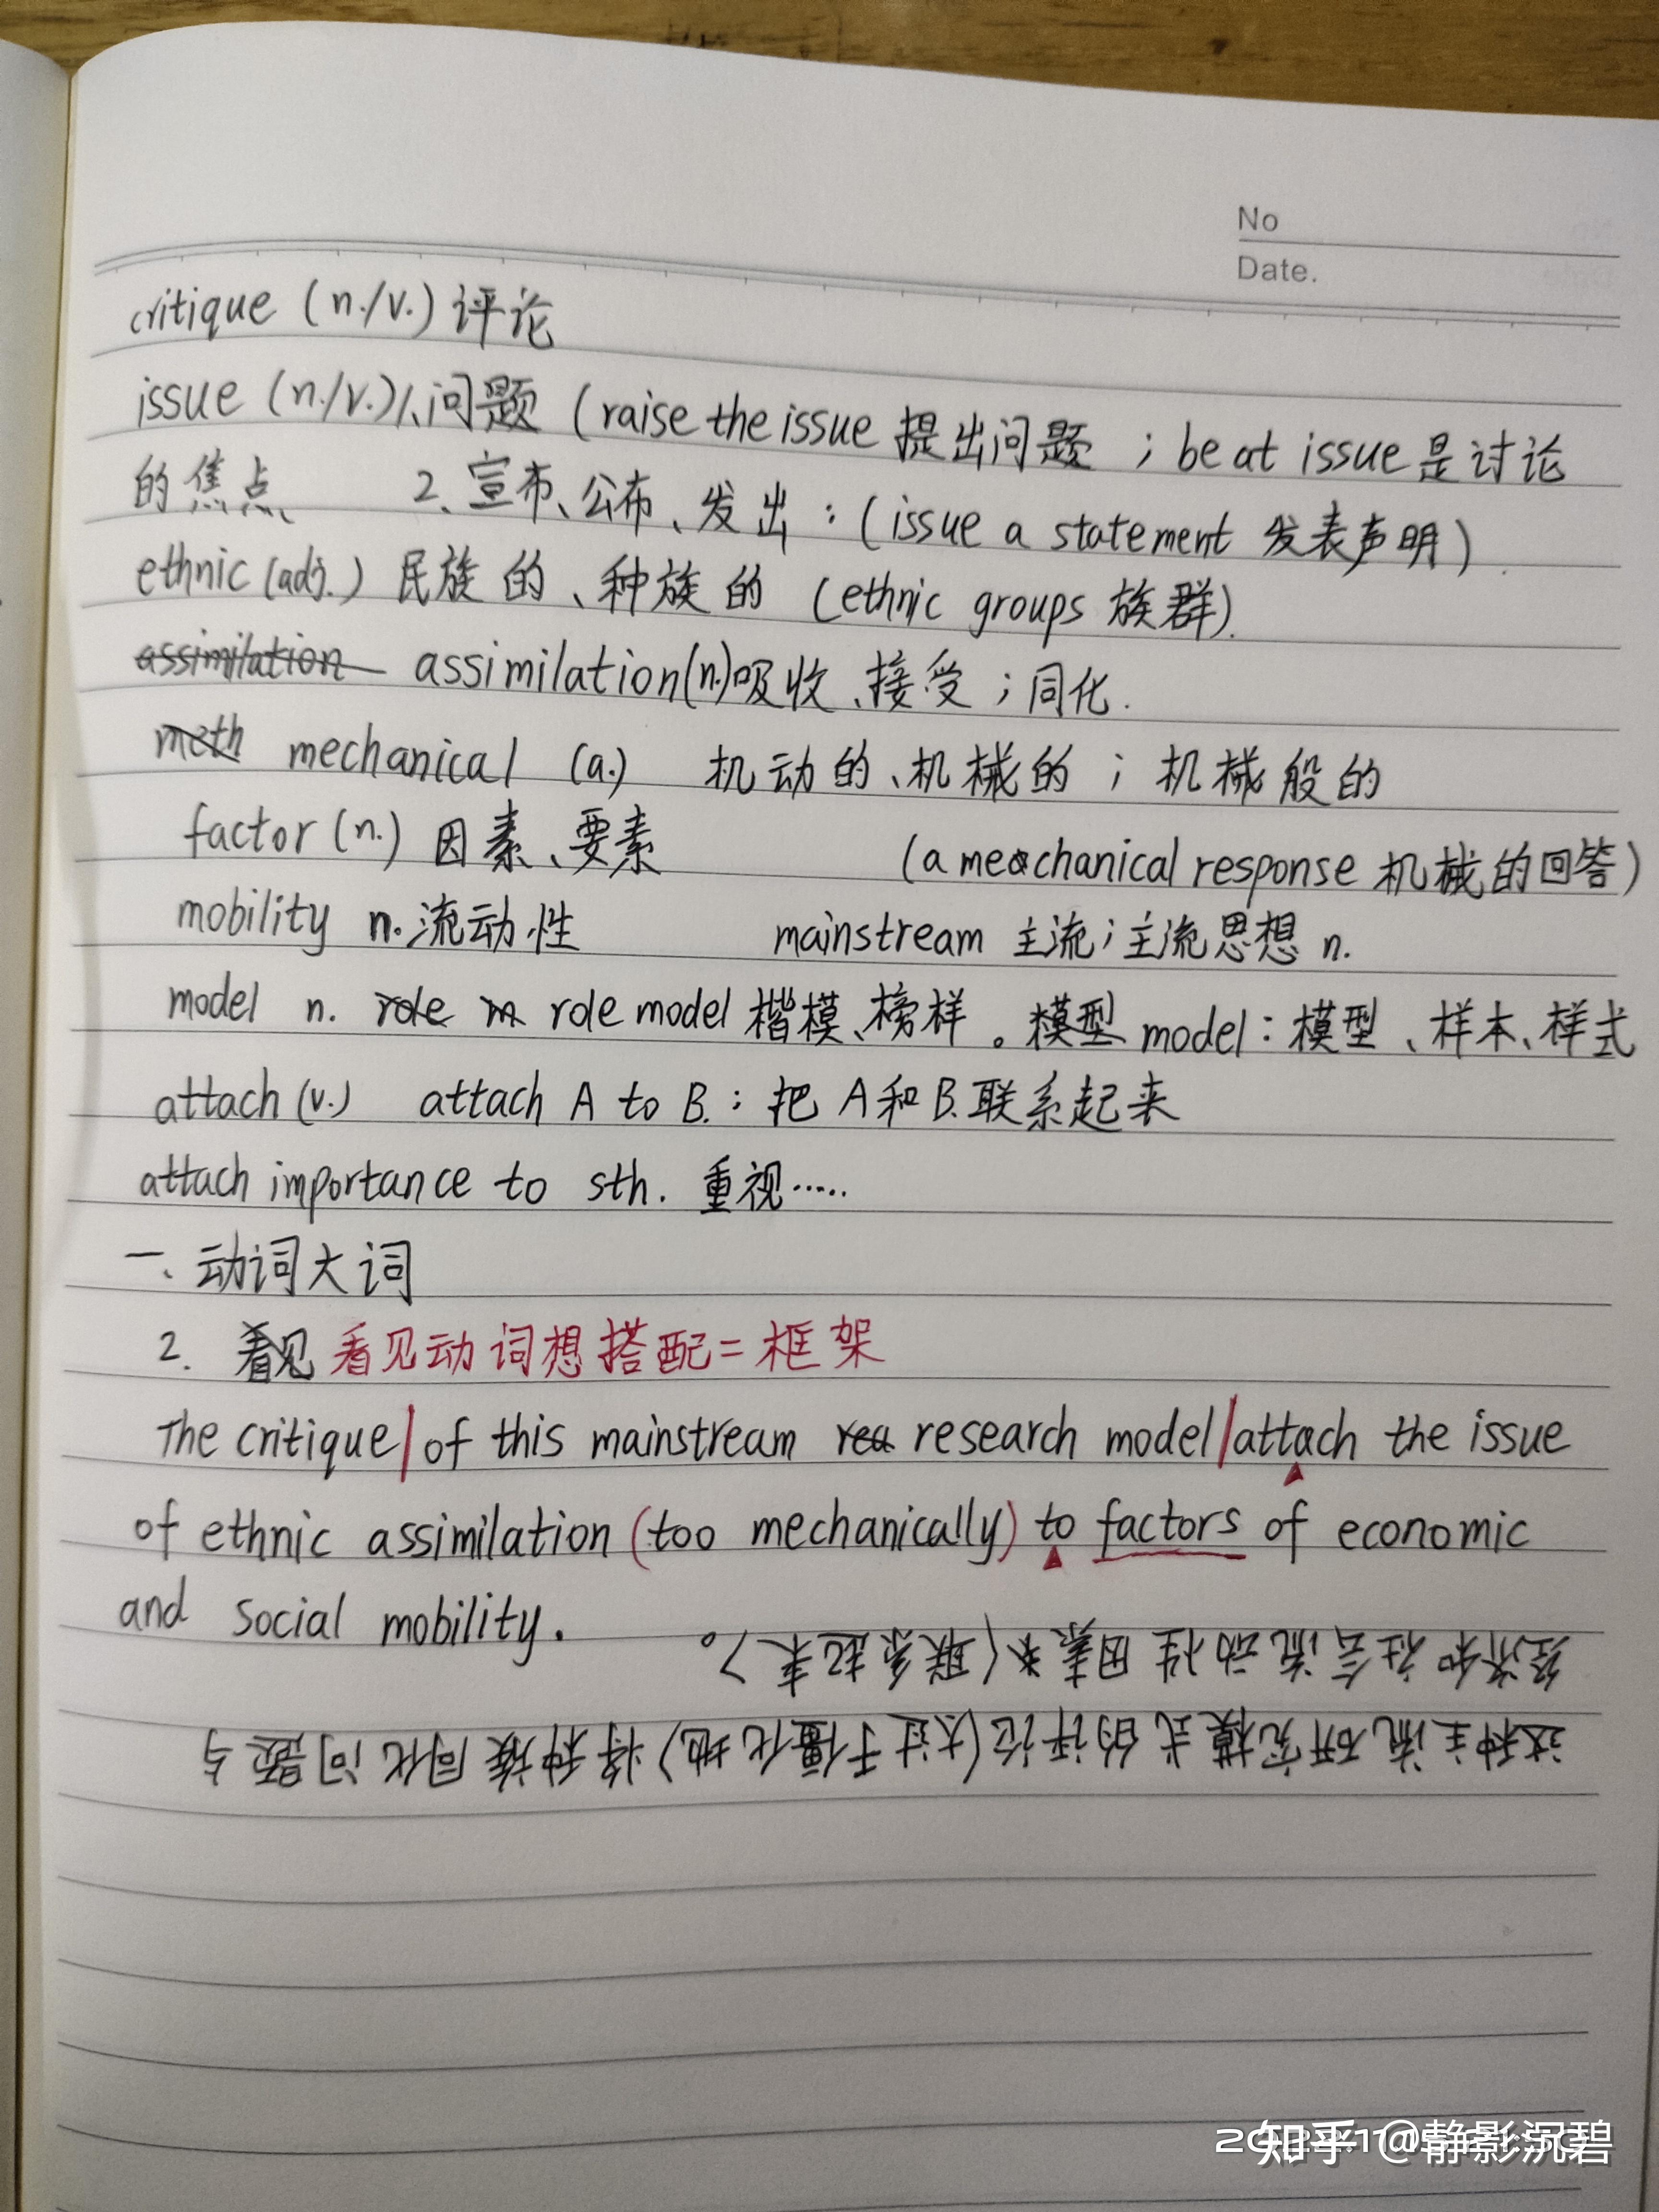 No
Date.
critique (n./v.) 评论
issue (n./v.) 1、问题 (raise the issue 提出问题 ; be at issue 是讨论
的焦点 2、宣布、公布、发出 : (issue a statement 发表声明)
ethnic (adj.) 民族的、种族的 (ethnic groups 族群).
assimilation assimilation (n.) 吸收、接受 ; 同化.
meth mechanical (a.) 机动的、机械的 ; 机械般的
factor (n.) 因素、要素 (a mechanical response 机械的回答)
mobility n. 流动性 mainstream 主流 ; 主流思想 n.
model n. role m role model 楷模、榜样。模型 model : 模型、样本、样式
attach (v.) attach A to B. : 把 A 和 B. 联系起来
attach importance to sth. 重视……
一、动词大词
2. 看见 看见动词想搭配 = 框架
The critique | of this mainstream rea research model | attach the issue
of ethnic assimilation (too mechanically) to factors of economic
and social mobility.
这种主流研究模式的评论(太过于僵化地)将种族同化问题与
经济和社会流动性因素(联系起来)。
知乎 @静影沉碧